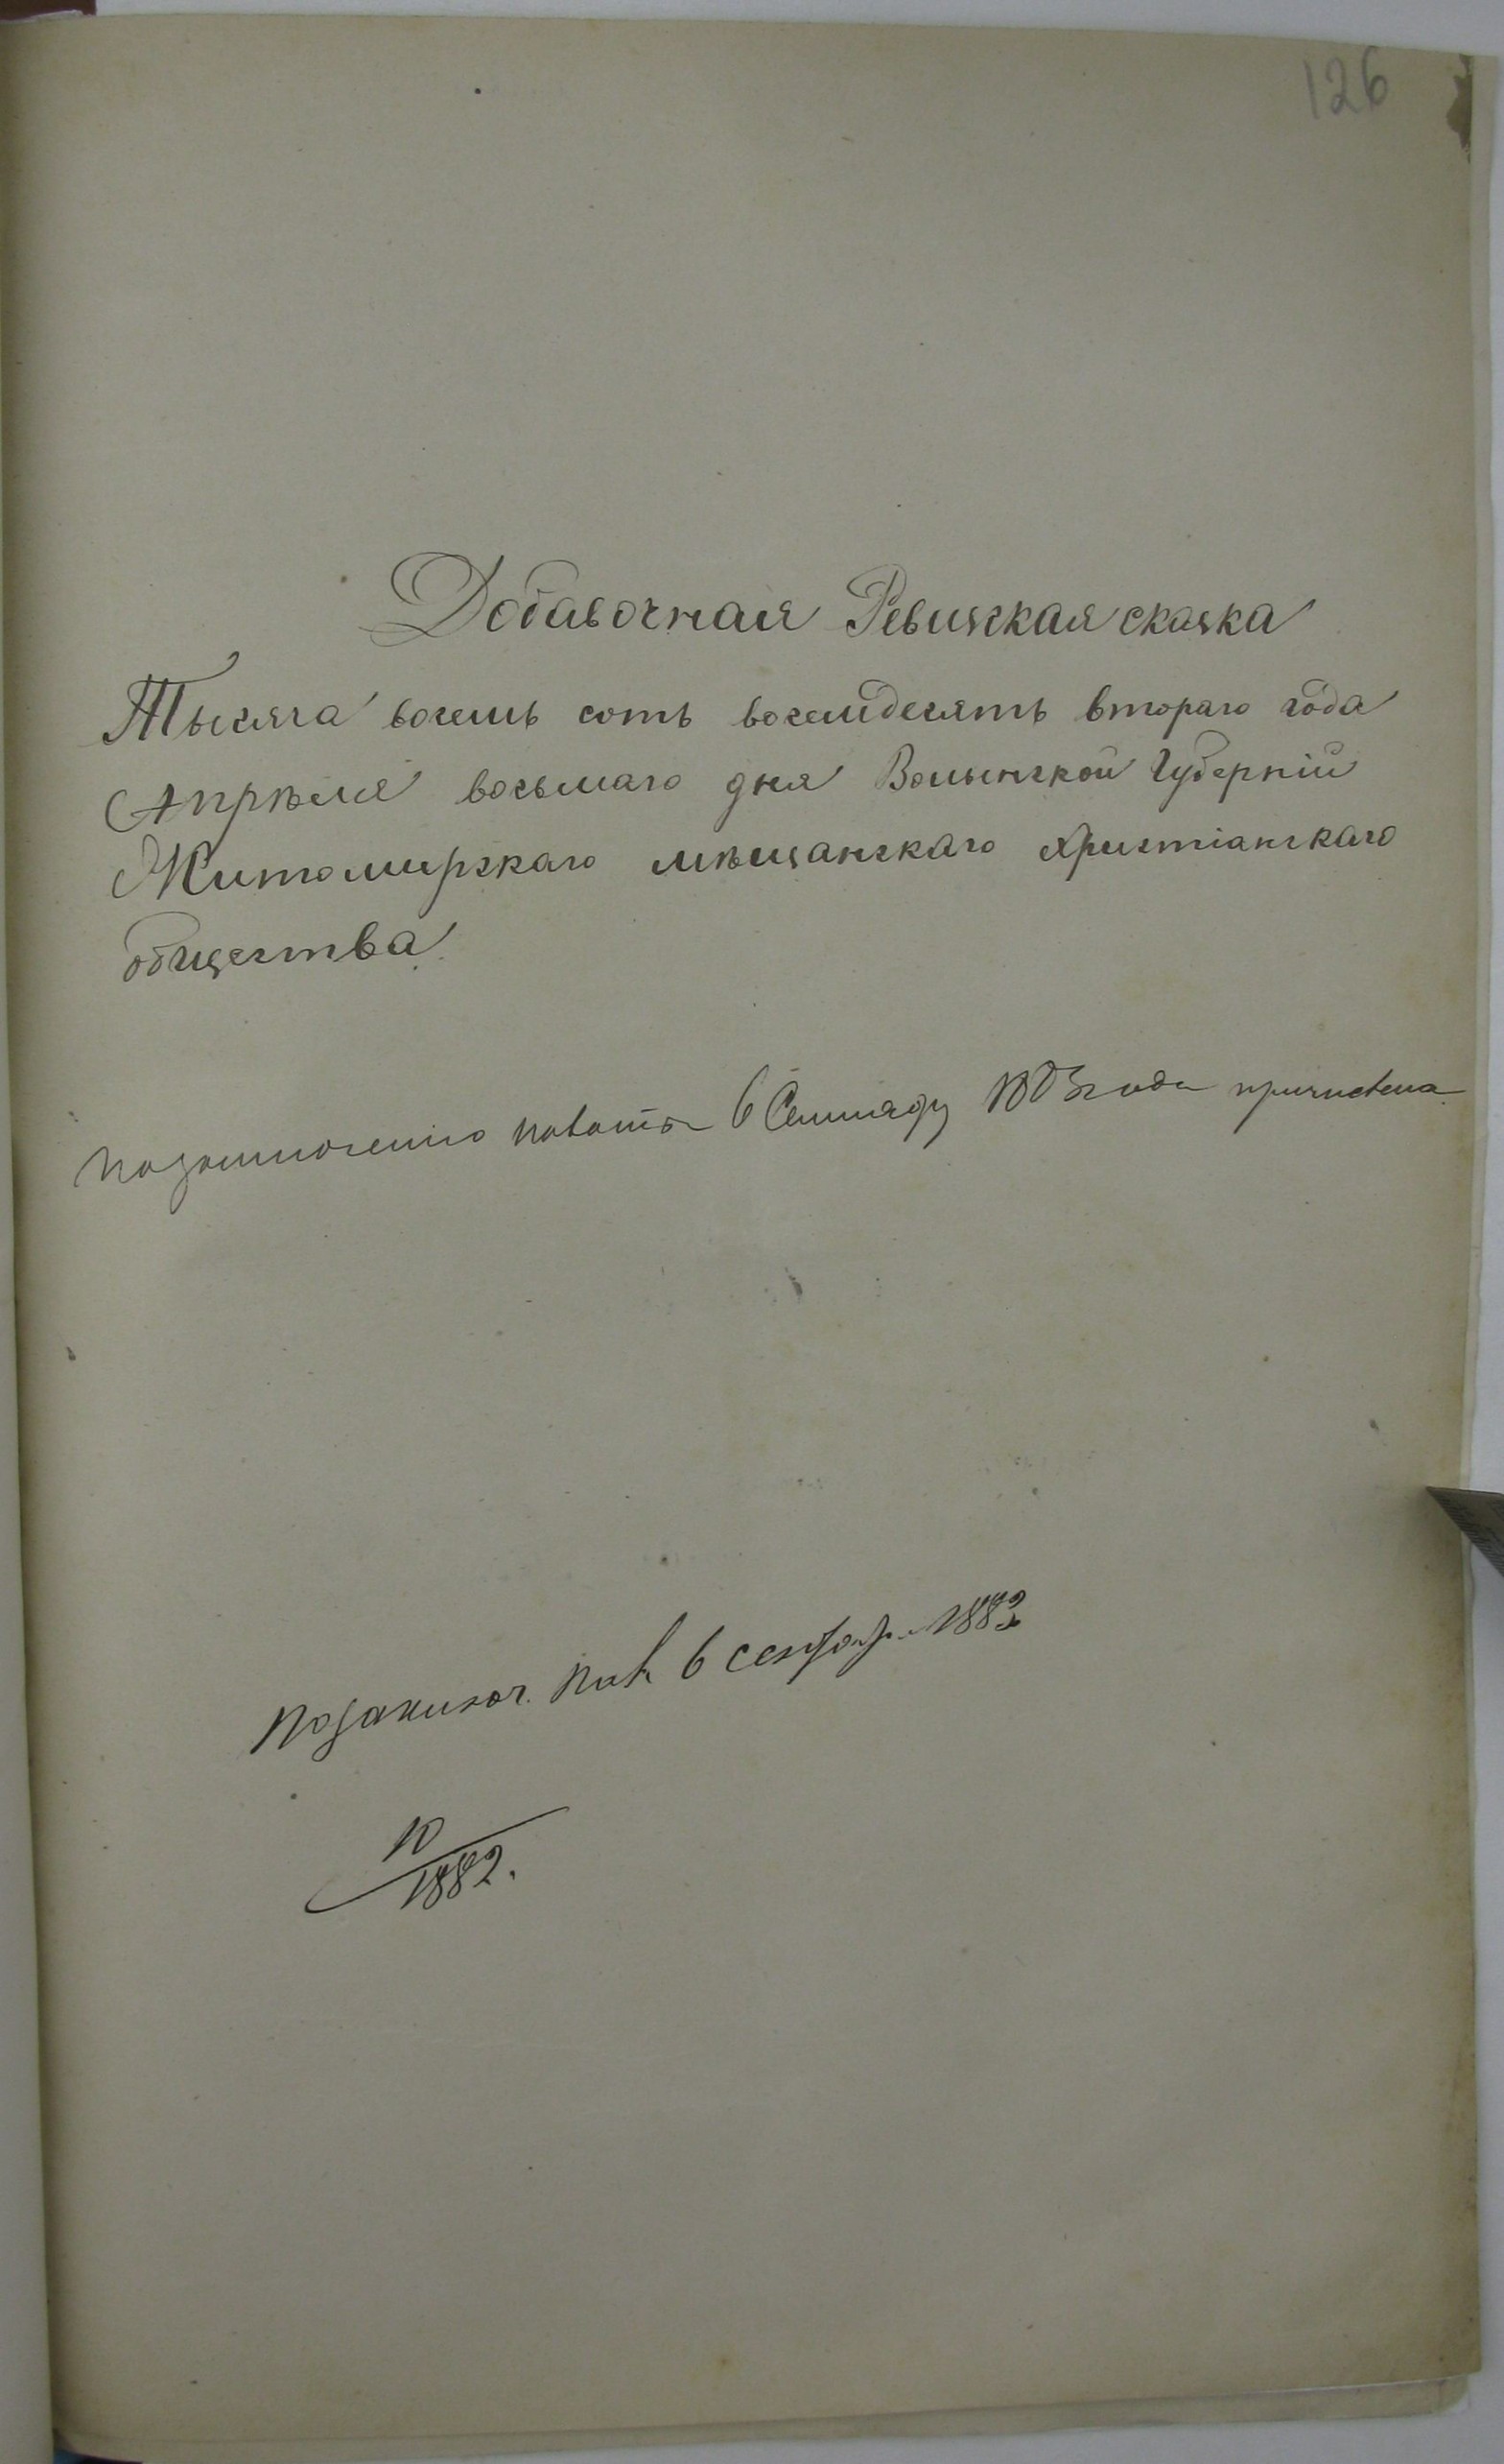 126
Добавочная Ревизская сказка
Тысяча восемь сотъ восемдесятъ втораго года
Апрѣля восьмаго дня Волынской Губерніи
Житомирскаго мѣщанскаго христіанскаго
общества.
По заключенію палаты 6 года причислена
По заключ. Пал. 6 сентяб. 1882
10
1882.